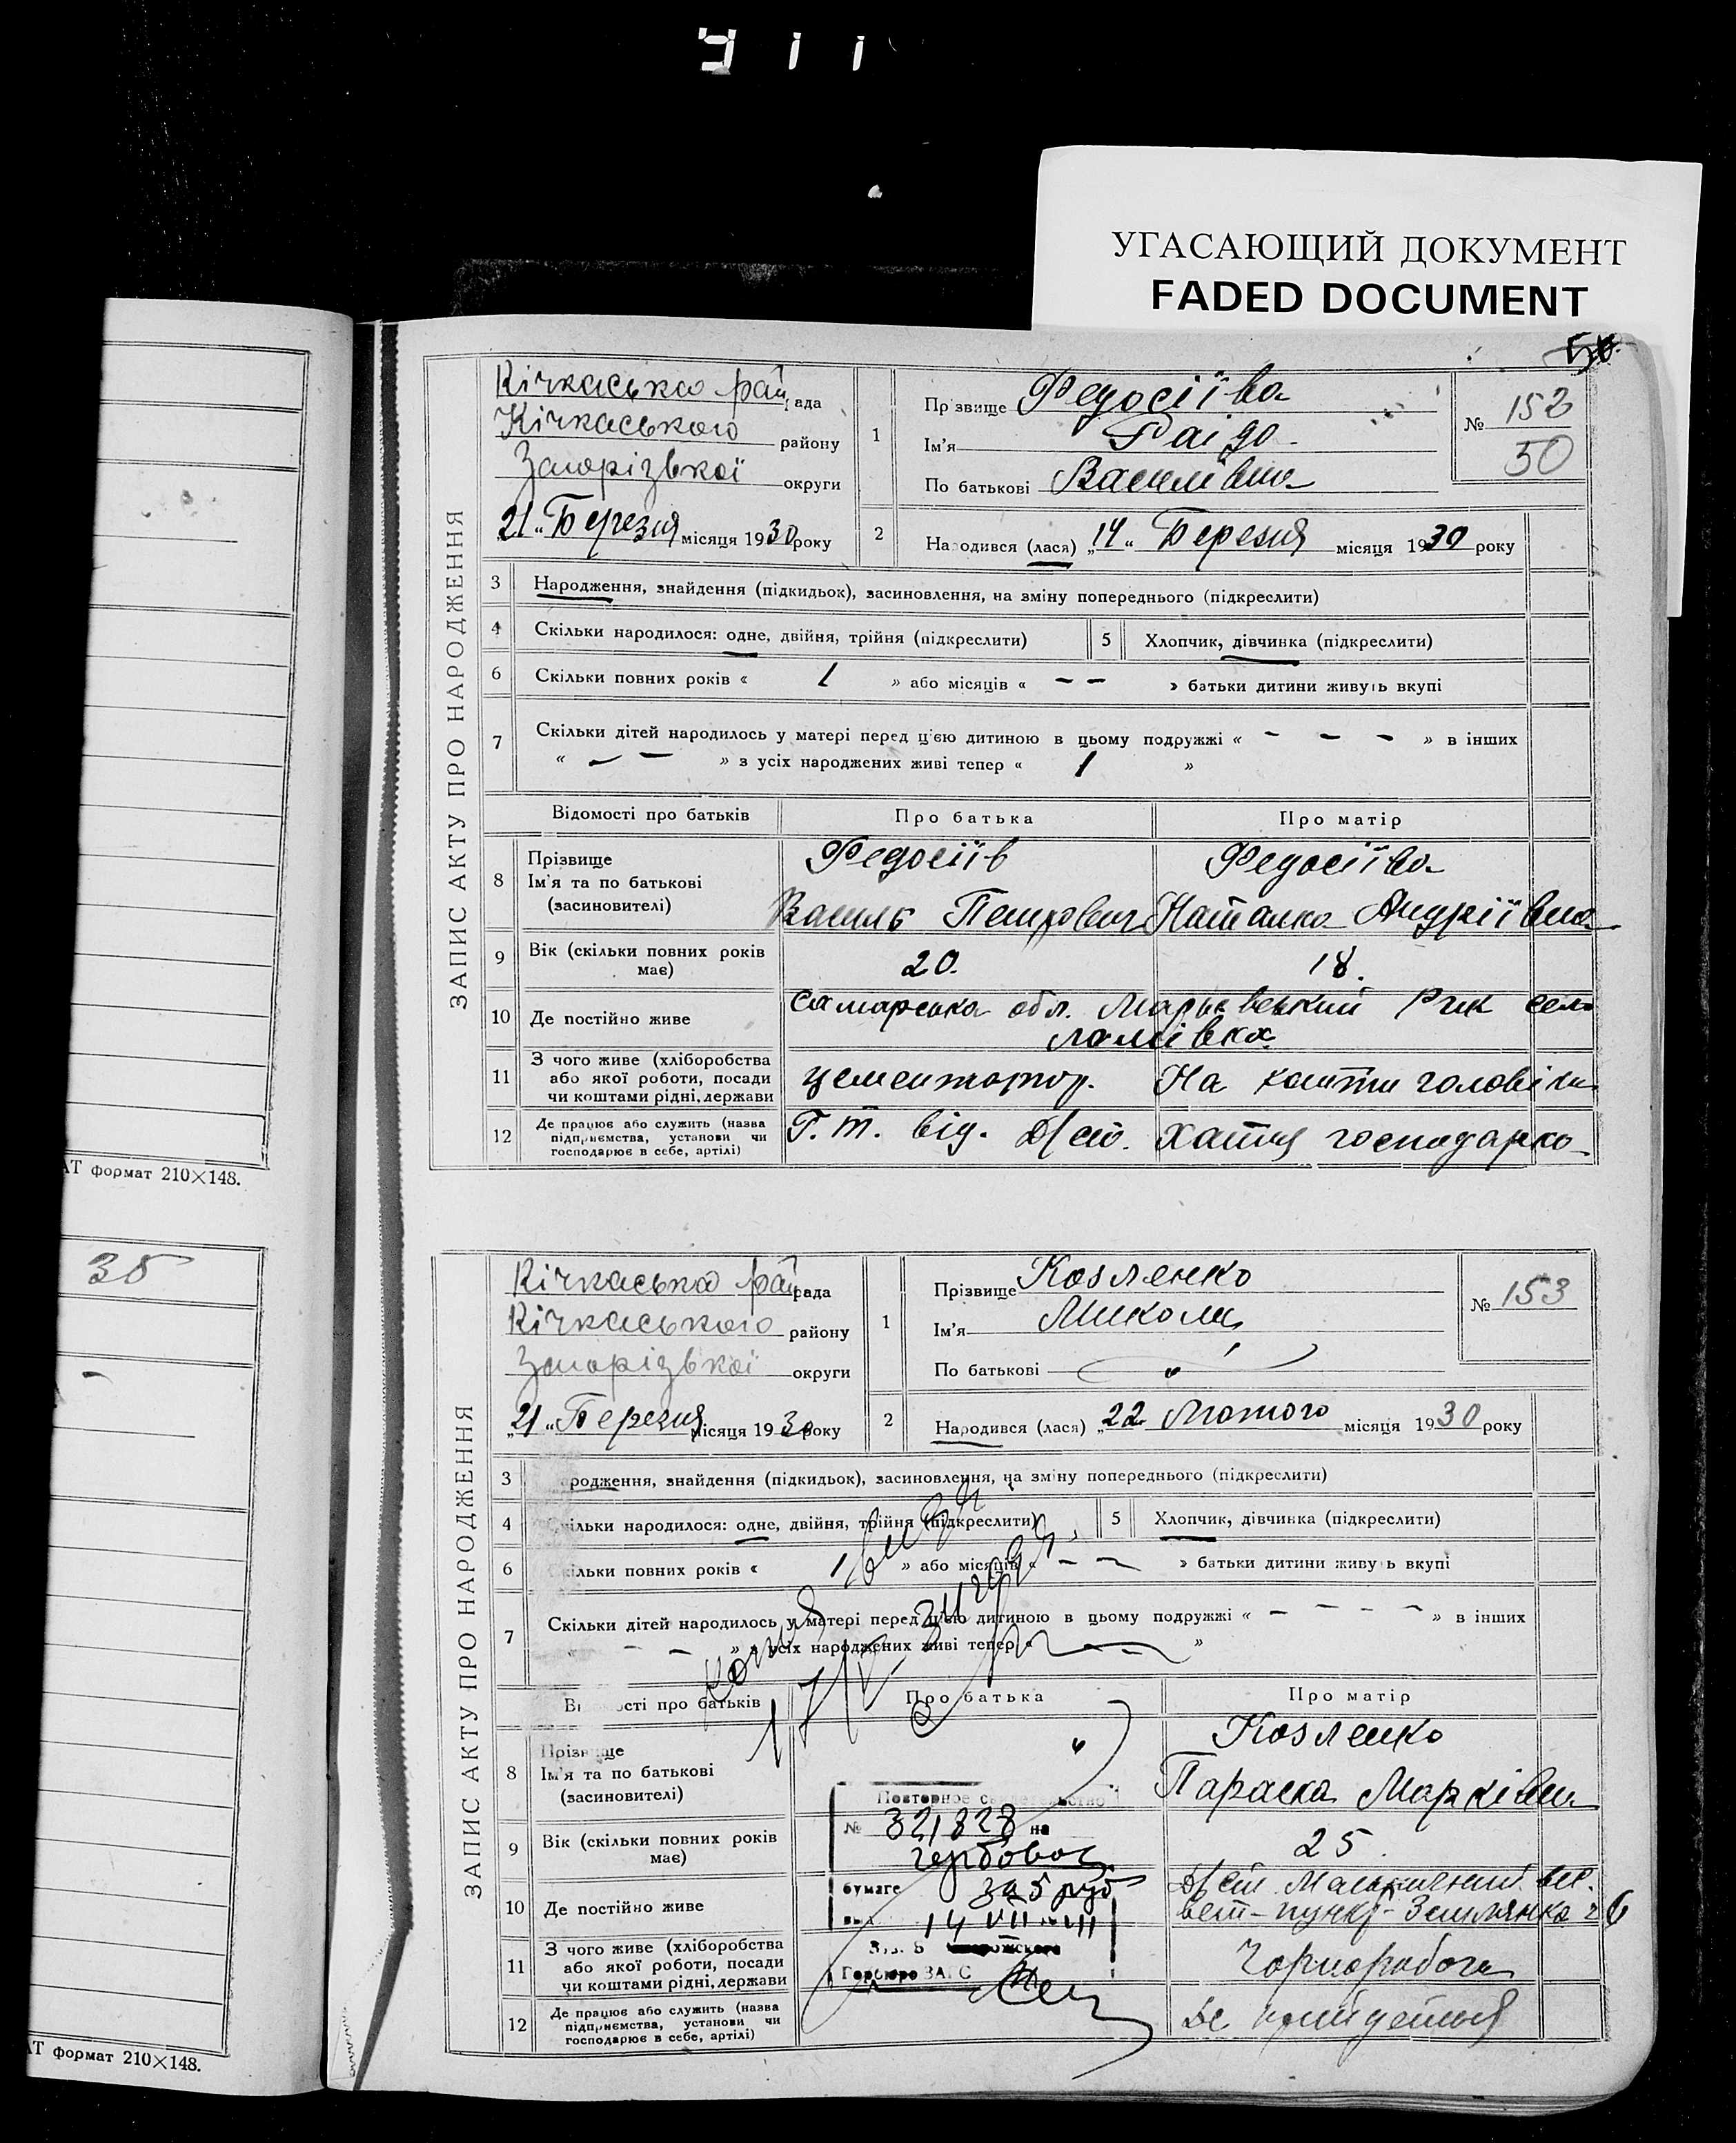 УГАСАЮЩИЙ ДОКУМЕНТ
FADED DOCUMENT
ЗАПИС АКТУ ПРО НАРОДЖЕННЯ
Кічкаська рай рада
Кічкаського району
Запорізької округи
21 „ Березня місяця 1930 року
1
Прізвище Федосіїва
Ім'я Раіда
По батькові Василівна
№ 152
50
2
Народився (лася) „14 “ Березня місяця 1930 року
3 Народження, знайдення (підкидьок), засиновлення, на зміну попереднього (підкреслити)
4 Скільки народилося: одне, двійня, трійня (підкреслити) 5 Хлопчик, дівчинка (підкреслити)
6 Скільки повних років « 1 » або місяців « — — » батьки дитини живуть вкупі
7 Скільки дітей народилось у матері перед цією дитиною в цьому подружжі « — — — » в інших
« — — » з усіх народжених живі тепер « 1 »
Відомості про батьків Про батька Про матір
8 Прізвище
Ім'я та по батькові
(засновителі)
Федосіїв
Василь Петрович
Федосіїва
Наталка Андріївна
9 Вік (скільки повних років має) 20. 18.
10 Де постійно живе Самарська обл. Рик село
11 З чого живе (хліборобства
або якої роботи, посади
чи коштами рідні, держави
цементатор. На кошти чоловіка
12 Де працює або служить (назва
підприємства, установи чи
господарює в себе, артілі)
Г. т. від. Д/ст. хатня господарка
АТ формат 210×148.
35
ЗАПИС АКТУ ПРО НАРОДЖЕННЯ
Кічкаська рай рада
Кічкаського району
Запорізької округи
„21 “ Березня місяця 1930 року
1
Прізвище Козленко
Ім'я Микола
По батькові
№ 153
2
Народився (лася) „22 Лютого місяця 1930 року
3 Народження, знайдення (підкидьок), засиновлення, на зміну попереднього (підкреслити)
4 Скільки народилося: одне, двійня, трійня (підкреслити) 5 Хлопчик, дівчинка (підкреслити)
6 Скільки повних років « » або місяців « — — » батьки дитини живуть вкупі
7 Скільки дітей народилось у матері перед цією дитиною в цьому подружжі « — — — — » в інших
« — — » з усіх народжених живі тепер « — »
Відомості про батьків Про батька Про матір
8 Прізвище
Ім'я та по батькові
(засиновителі)
Козленко
Параска Марківна
Повторное свидетельство
№ 321828 на
гербовой
бумаге 3 руб
14 VII
Горбюро ЗАГС
9 Вік (скільки повних років має) 25.
10 Де постійно живе пункт Землянка 26
11 З чого живе (хліборобства
або якої роботи, посади
чи коштами рідні, держави
Чорнороботч
12 Де працює або служить (назва
підприємства, установи чи
господарює в себе, артілі)
Де прийдеться
АТ формат 210×148.